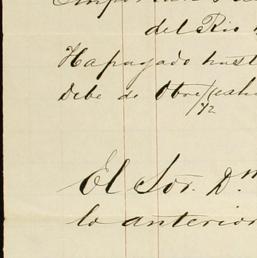 del Rio
Ha pagado hast
Debe de Obre
1/2
El Sor. Dn
lo anterior